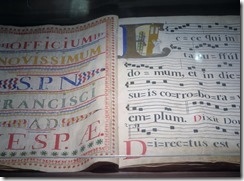 OFFICIUM
NOVISSIMUM
S.P.N.
FRANCISCI
AD
VESP. Æ.
ce qui in
ta = = =
do = mum, et in die
su = is cor = ro = bo = ra =
em = plum. DIXIT DOM
Di = rec = tus est